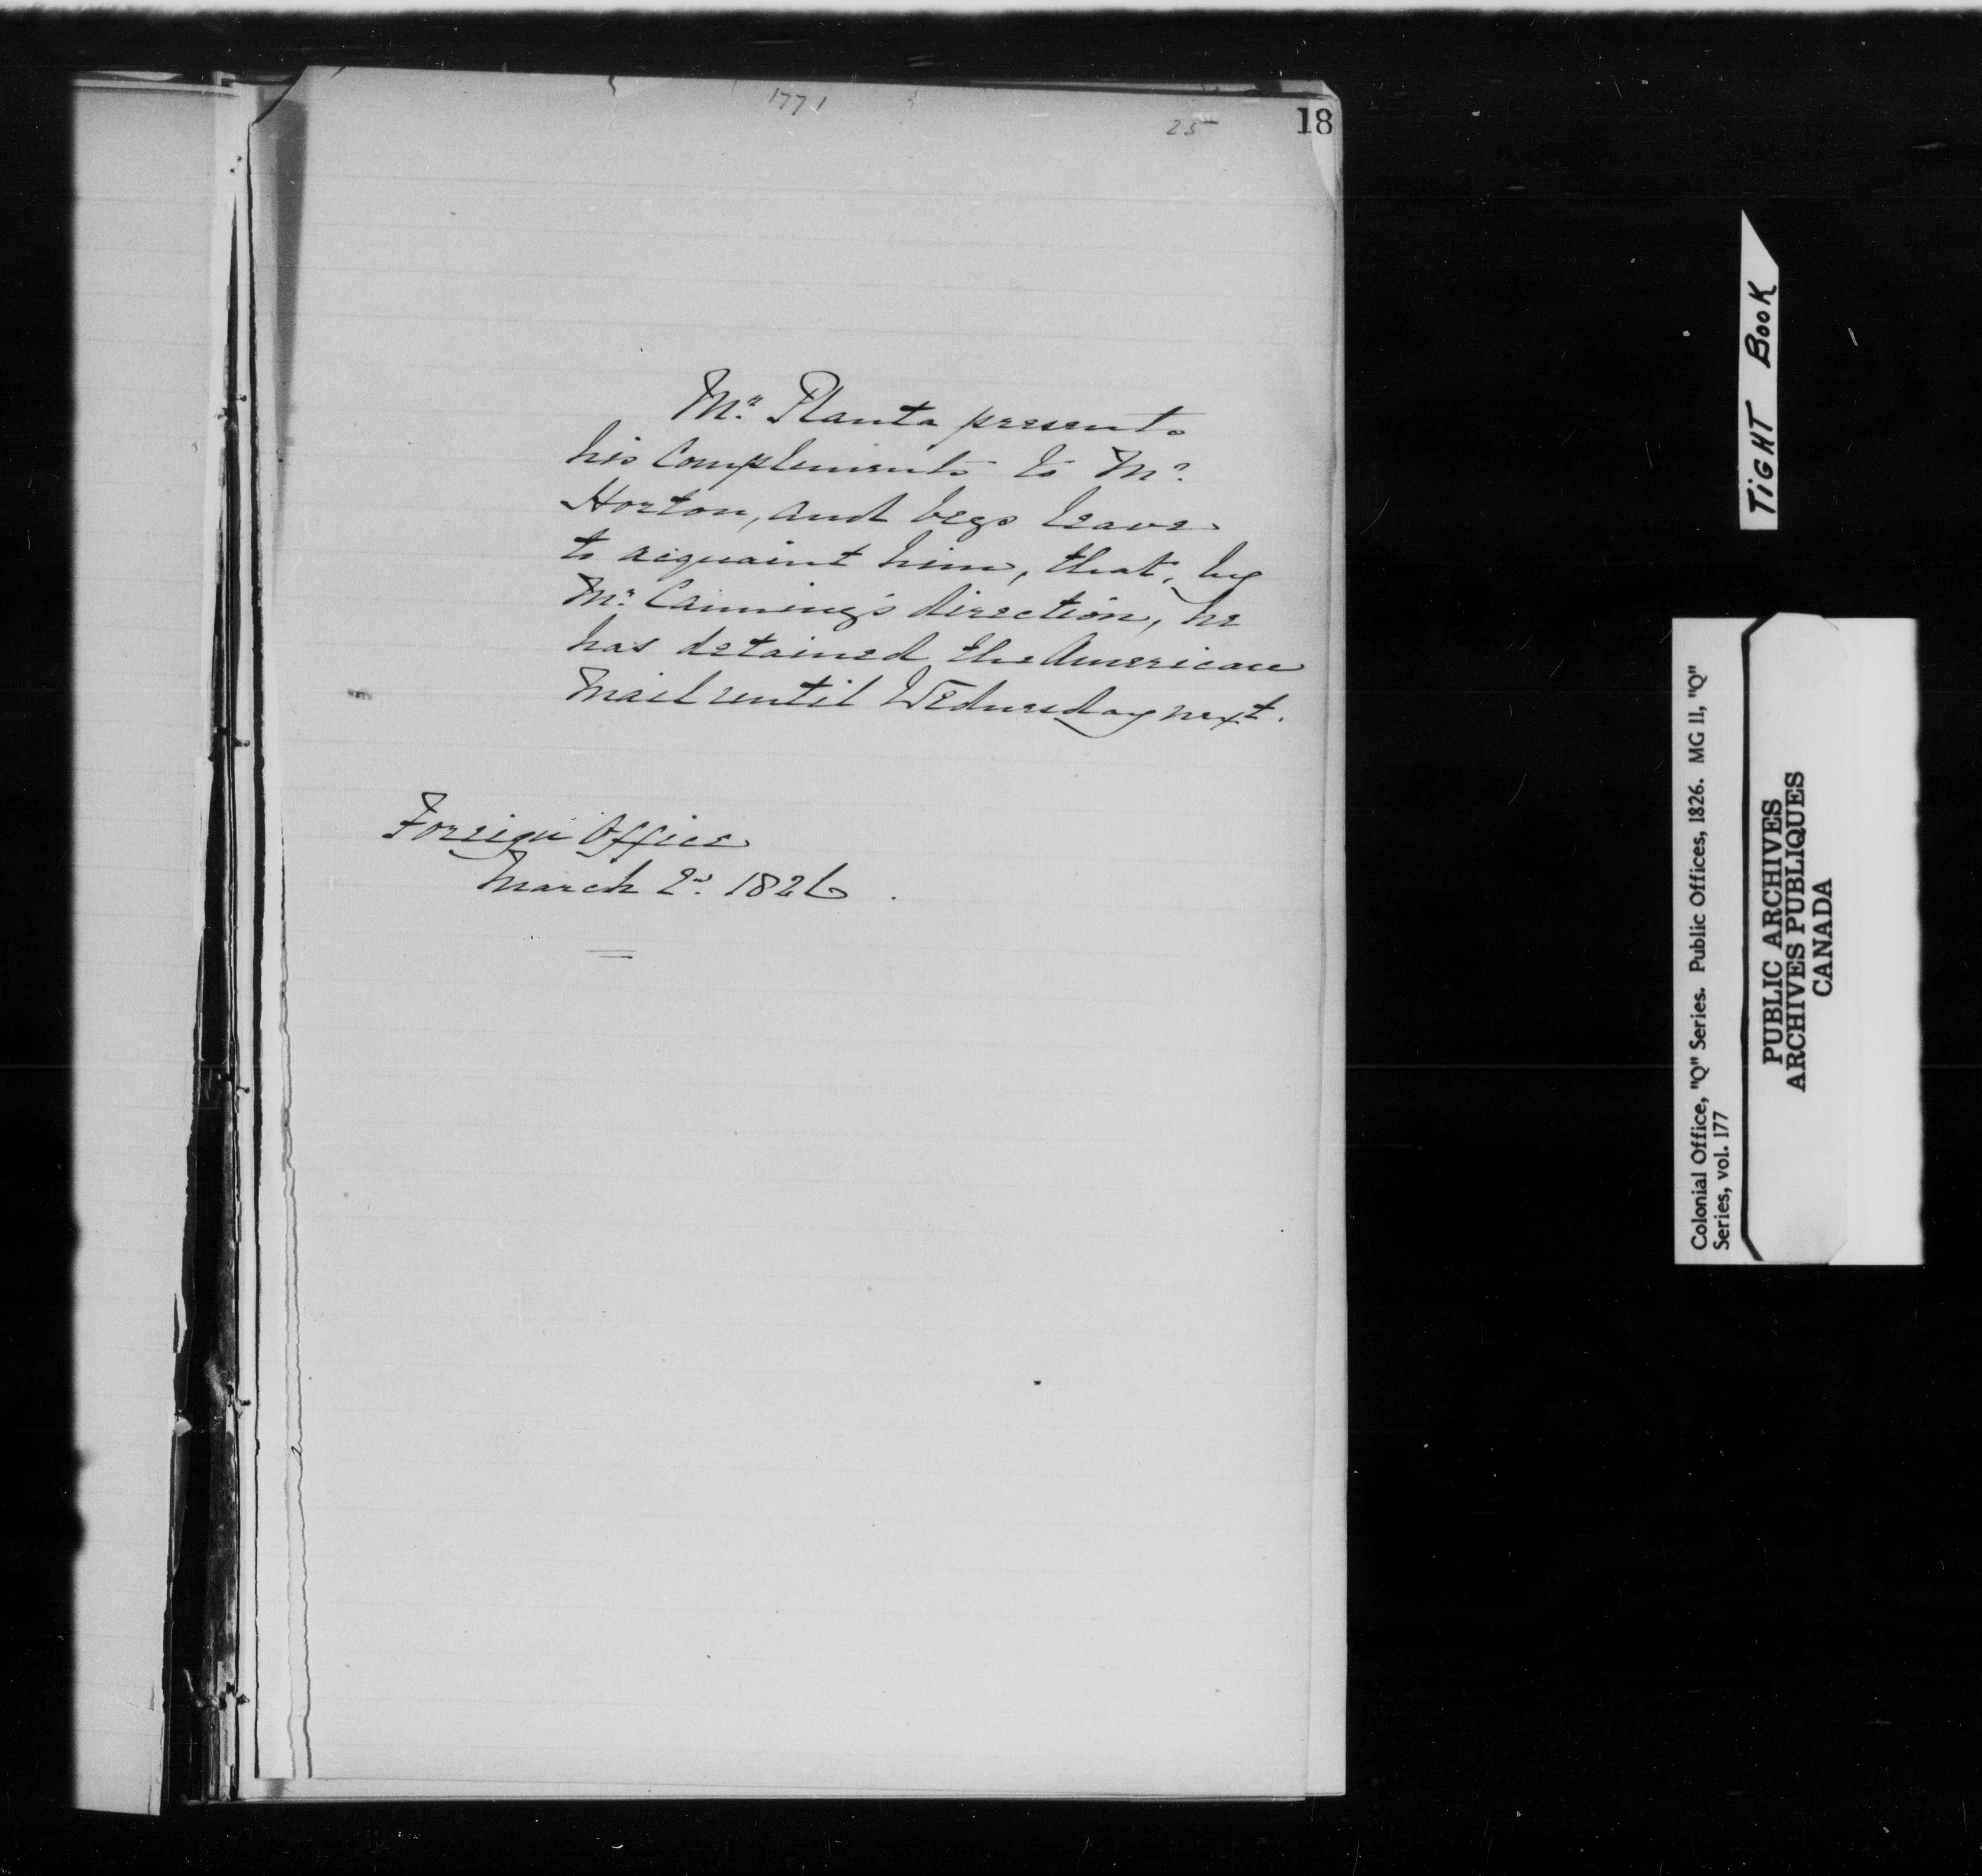 1771
25
18
Mr. Planta presents
his compliments to Mr.
Horton, and begs leave
to acquaint him, that, by
Mr. Canning's direction, he
has detained the American
Mail until Wednesday next.
Foreign Office
March 2d. 1826.
TIGHT BOOK
Colonial Office, "Q" Series. Public Offices, 1826. MG 11, "Q"
Series, vol. 177
PUBLIC ARCHIVES
ARCHIVES PUBLIQUES
CANADA